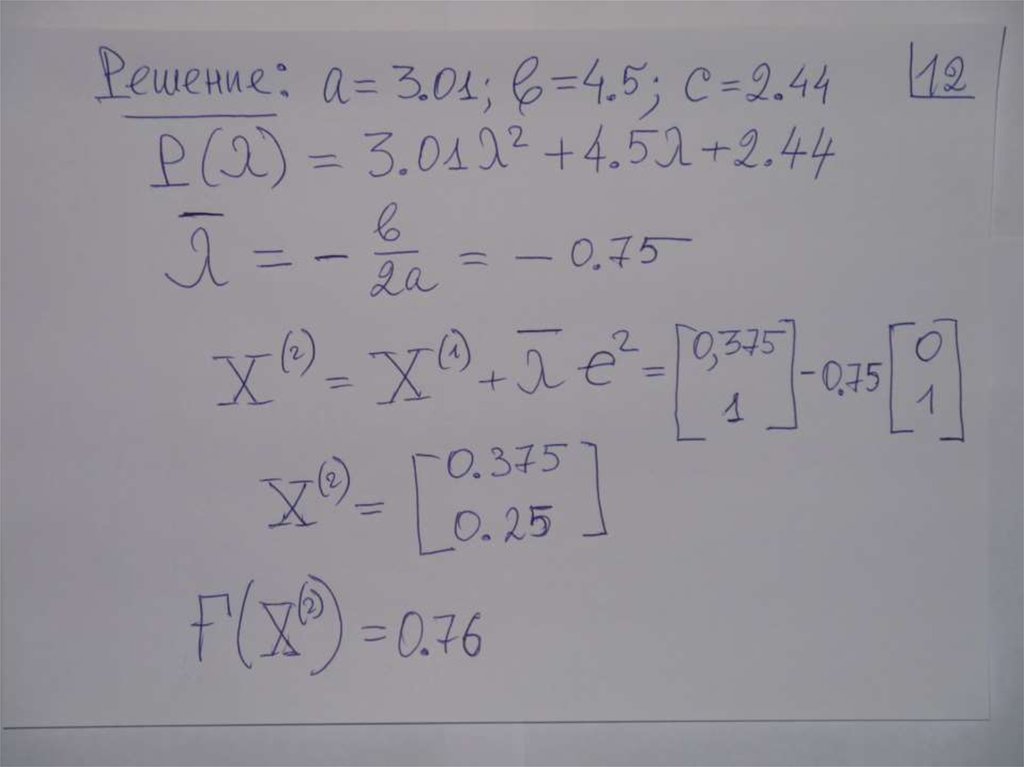 Решение: a = 3.01; b = 4.5; c = 2.44
12
P(λ) = 3.01λ² + 4.5λ + 2.44
λ̅ = - b/2a = - 0.75
X⁽²⁾ = X⁽¹⁾ + λ̅ e² = [0,375 1] - 0.75 [0 1]
X⁽²⁾ = [0.375 0.25]
F(X⁽²⁾) = 0.76